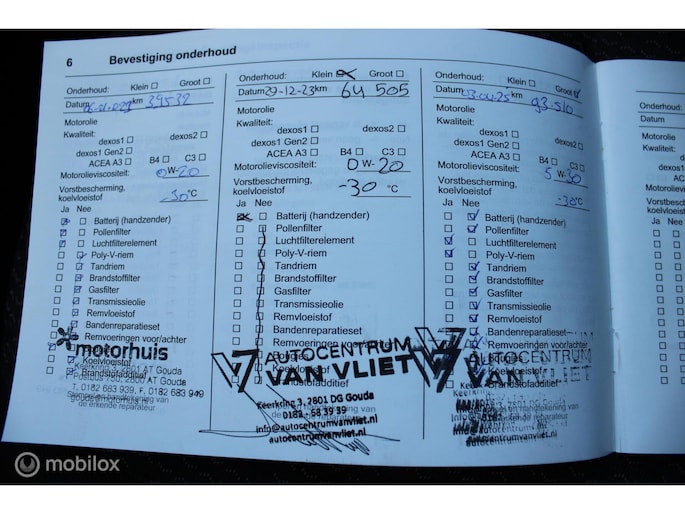 6 Bevestiging onderhoud
Onderhoud: Klein Groot
Datum km 39532
Motorolie
Kwaliteit:
dexos1 dexos2
dexos1 Gen2
ACEA A3 B4 C3
Motorolieviscositeit: 0 W-20
Vorstbescherming,
koelvloeistof -30 °C
Ja Nee
Batterij (handzender)
Pollenfilter
Luchtfilterelement
Poly-V-riem
Tandriem
Brandstoffilter
Gasfilter
Transmissieolie
Remvloeistof
Bandenreparatieset
Remvoeringen voor/achter
motorhuis
Koelvloeistof
Keerkring 3, 2801 AT Gouda
Brandstofadditief
Postbus 750, 2800 AT Gouda
T. 0182 683 939, F. 0182 683 949
de erkende reparateur
Onderhoud: Klein Groot
Datum 29-12-23 km 64 505
Motorolie
Kwaliteit:
dexos1 dexos2
dexos1 Gen2
ACEA A3 B4 C3
Motorolieviscositeit: 0 W-20
Vorstbescherming,
koelvloeistof -30 °C
Ja Nee
Batterij (handzender)
Pollenfilter
Luchtfilterelement
Poly-V-riem
Tandriem
Brandstoffilter
Gasfilter
Transmissieolie
Remvloeistof
Bandenreparatieset
Remvoeringen voor/achter
AUTOCENTRUM
VAN VLIET
Keerkring 3, 2801 DG Gouda
0182 - 58 39 39
info@autocentrumvanvliet.nl
autocentrumvanvliet.nl
Onderhoud: Klein Groot
Datum 03-04-25 km 93.510
Motorolie
Kwaliteit:
dexos1 dexos2
dexos1 Gen2
ACEA A3 B4 C3
Motorolieviscositeit: 5 W-30
Vorstbescherming,
koelvloeistof -30 °C
Ja Nee
Batterij (handzender)
Pollenfilter
Luchtfilterelement
Poly-V-riem
Tandriem
Brandstoffilter
Gasfilter
Transmissieolie
Remvloeistof
Bandenreparatieset
AUTOCENTRUM
VAN
Onderhoud:
Datum
Motorolie
Kwaliteit:
Motorolieviscositeit
Vorstbescherming,
koelvloeistof
Ja Nee
mobilox